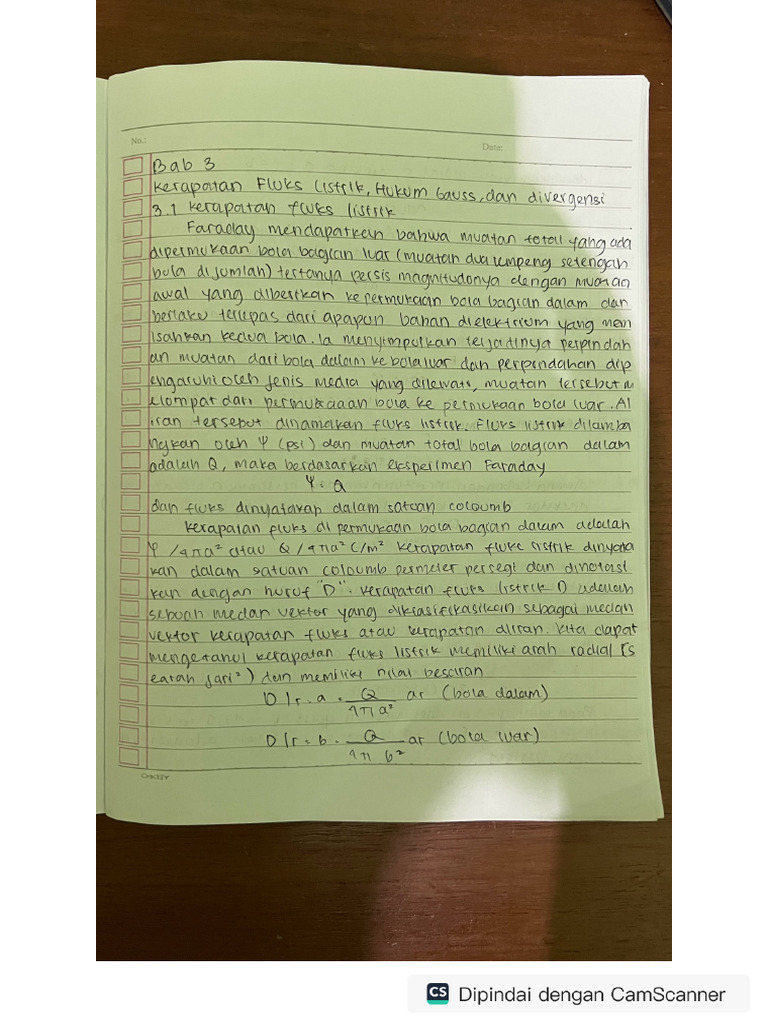 No.:
Date:
Bab 3
Kerapatan Fluks Listrik, Hukum Gauss, dan divergensi
3.1 kerapatan fluks listrik
Faraday mendapatkan bahwa muatan total yang ada
dipermukaan bola bagian luar (muatan dua lempeng setengah
bola dijumlah) tertanya persis magnitudonya dengan muatan
awal yang diberikan kepermukaan bola bagian dalam dan
berlaku terlepas dari apapun bahan dielektrium yang mem
isahkan kedua bola. Ia menyimpulkan terjadinya perpindah
an muatan dari bola dalam ke bola luar dan perpindahan dip
engaruhi oleh jenis media yang dilewati, muatan tersebut m
elompat dari permukaaan bola ke permukaan bola luar. Al
iran tersebut dinamakan fluks listrik. Fluks listrik dilamba
ngkan oleh Ψ (psi) dan muatan total bola bagian dalam
adalah Q, maka berdasarkan eksperimen Faraday
Ψ = Q
dan fluks dinyatakan dalam satuan coloumb
Kerapatan fluks di permukaan bola bagian dalam adalah
Ψ / 4πa² atau Q / 4πa² C/m² kerapatan fluks listrik dinyata
kan dalam satuan coloumb permeter persegi dan dinotasi
kan dengan huruf "D". Kerapatan fluks listrik D adalah
sebuah medan vektor yang diklasifikasikan sebagai medan
vektor kerapatan fluks atau kerapatan aliran. Kita dapat
mengetahui kerapatan fluks listrik memiliki arah radial [s
earah jari²) dan memiliki nilai besaran
D |r = a = Q / 4πa² ar (bola dalam)
D |r = b = Q / 4π b² ar (bola luar)
CS Dipindai dengan CamScanner